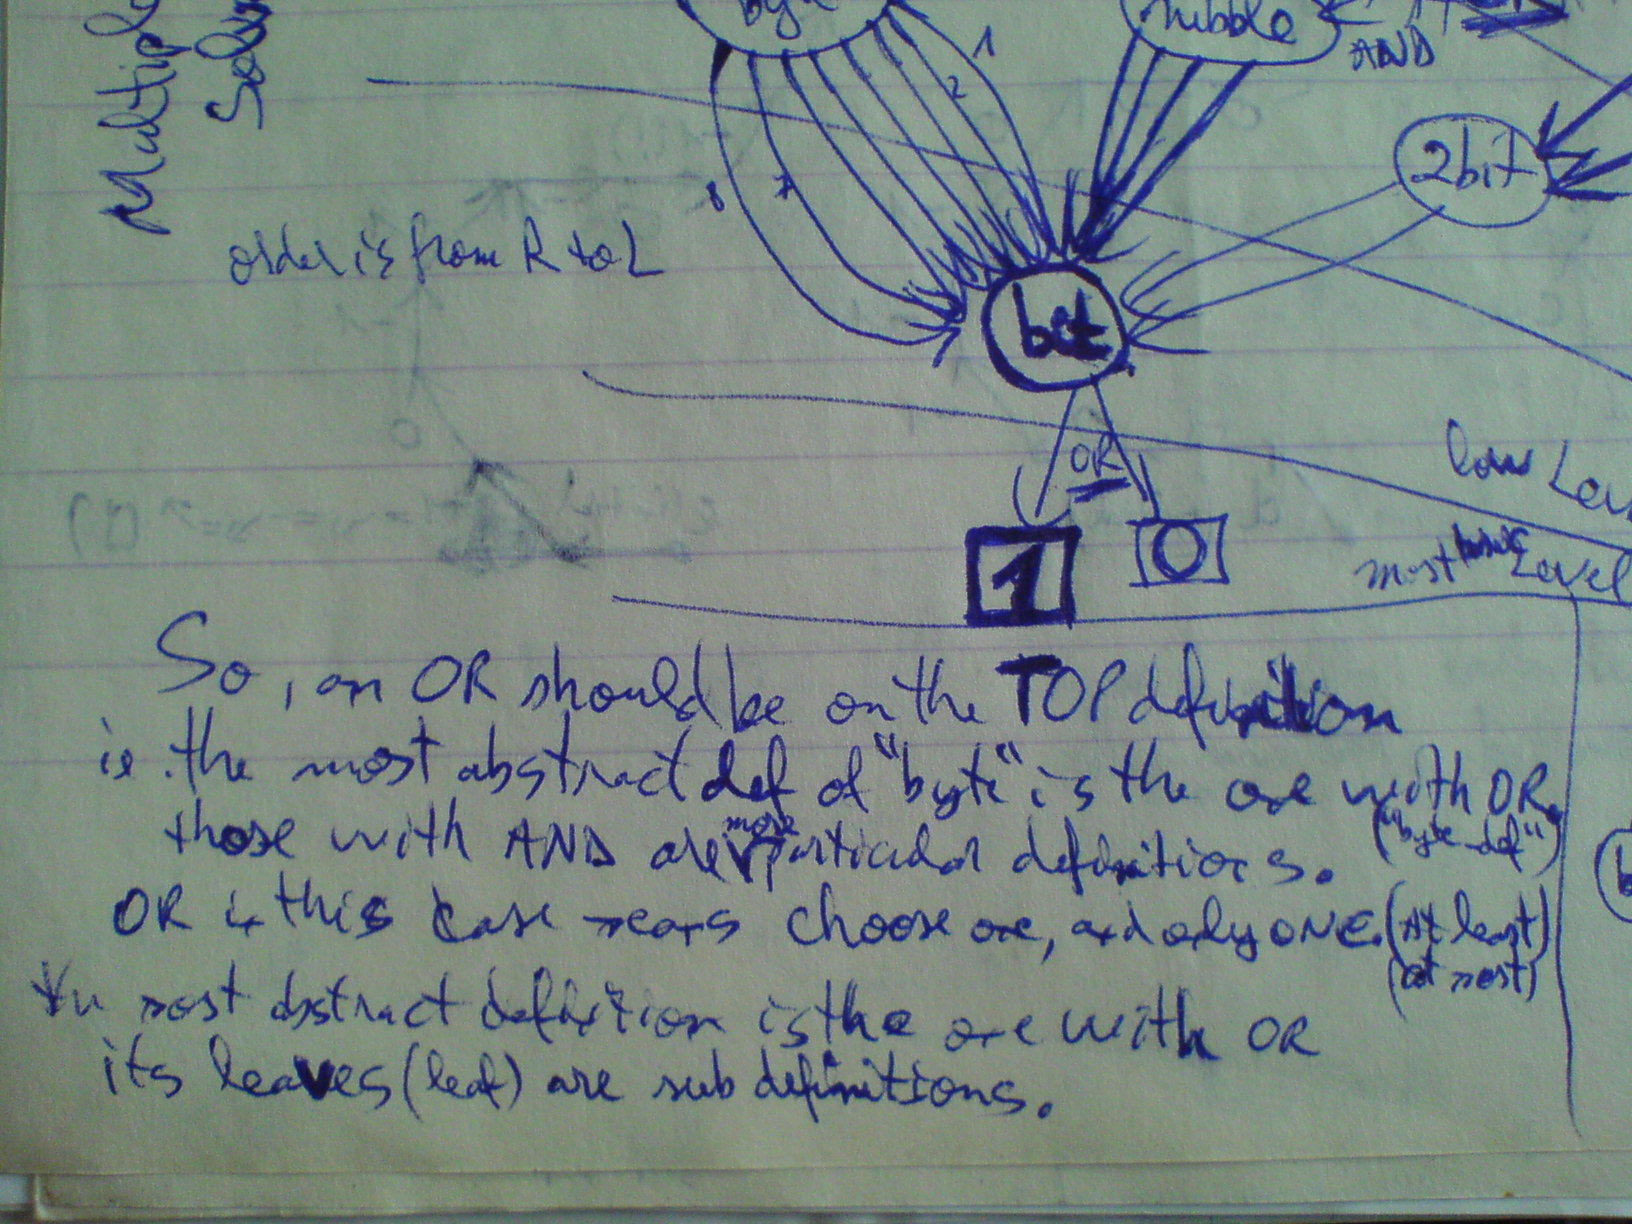 Multiple
Solu
byte
nibble
AND
1
2
8
7
2bit
order is from R to L
bit
OR
1
0
low Lev
most basic Level
So, an OR should be on the TOP definition
ie. the most abstract def of "byte" is the one with OR.
those with AND are more particular definitions. ("byte-def")
OR in this case means choose one, and only ONE. (At least)
(at most)
most abstract definition is the one with OR
its leaves (leaf) are sub definitions.
b